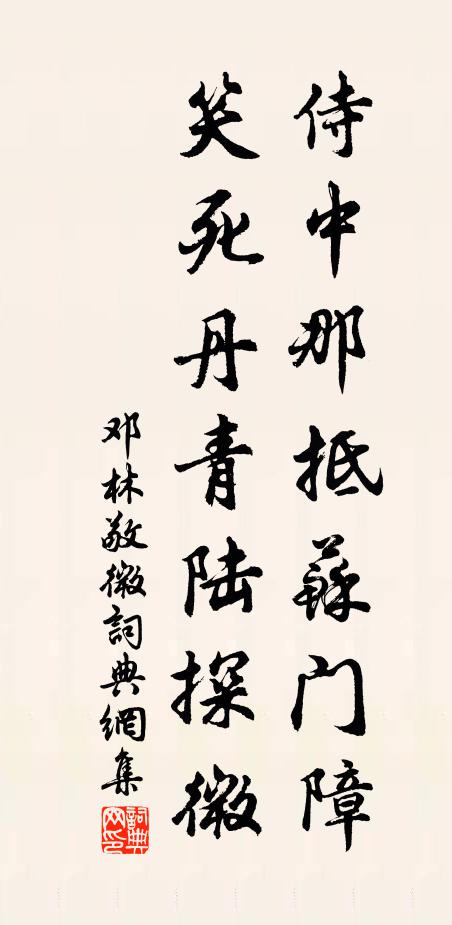 侍中那抵蘇门障
笑死丹青陆探微
邓林敬微詞典網集
詞典网印